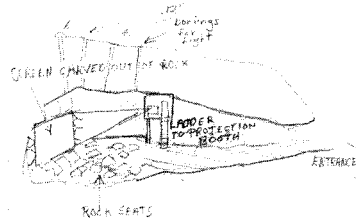 12"
borings
for
light
SCREEN CARVED OUT OF ROCK
LADDER
TO PROJECTION
BOOTH
ENTRANCE
ROCK SEATS